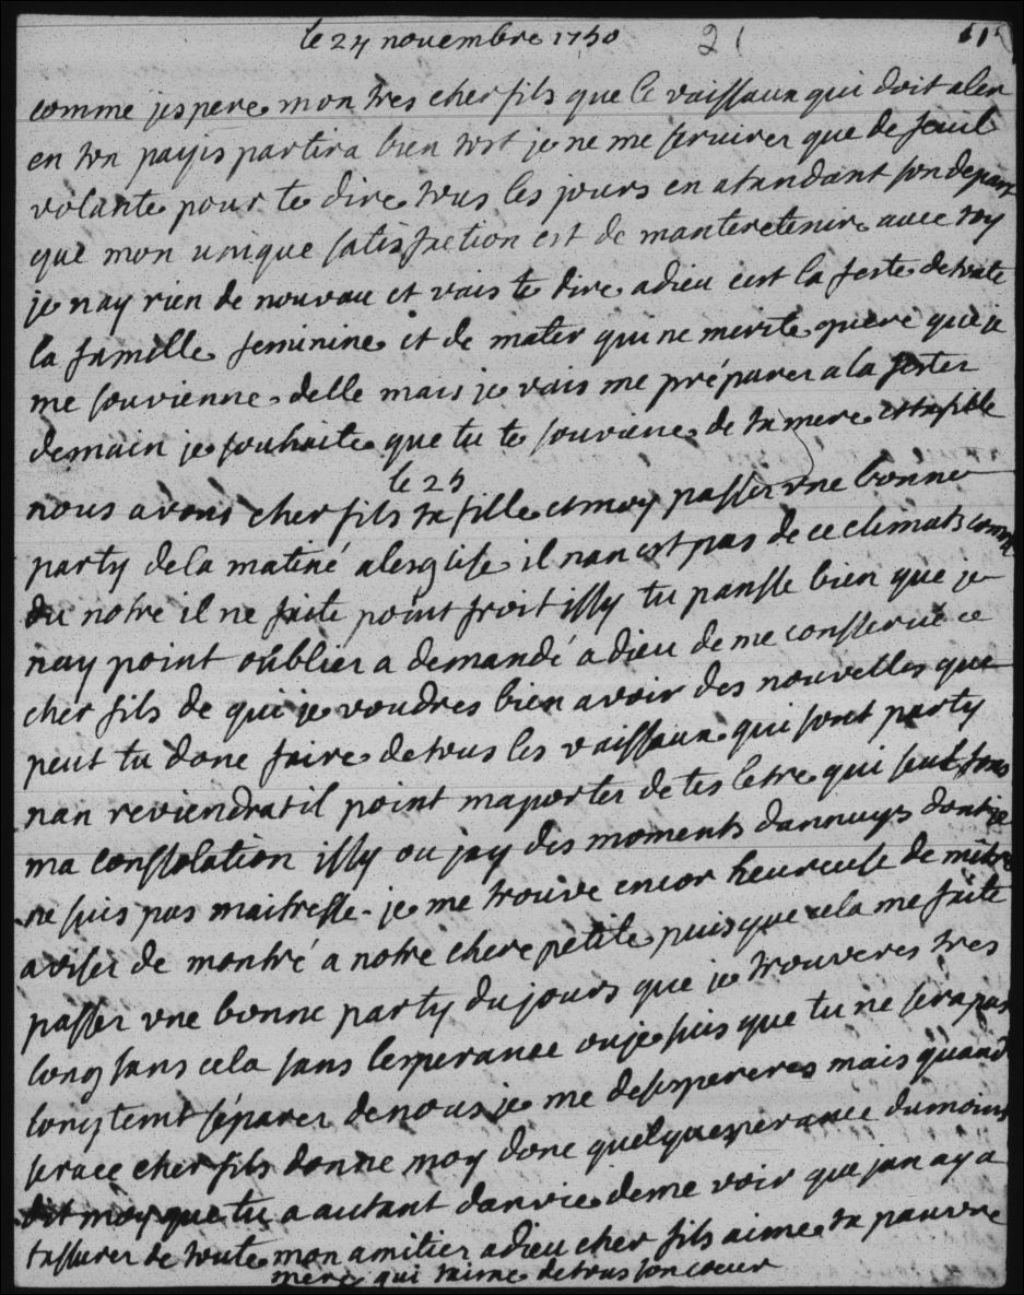 le 24 novembre 1750 21
comme jespere mon tres cher fils que le vaissaux qui doit aler
en ton payis partira bien tost je ne me servirer que de feuil
volante pour te dire tous les jours en atandant son depart
que mon unique satisfaction est de manteretenire avec toy
je nay rien de nouvau et vais te dire adieu cest la feste de toute
la famille feminine et de mater qui ne merite guere que je
me souvienne delle mais je vais me préparer a la fester
demain je souhaite que tu te souviene de ta mere et ta fille
le 25
nous avons cher fils ta fille et moy passer une bonne
party de la matiné a leglise il nan est pas de ce climats comme
du notre il ne faite point froit issy tu pansse bien que je
nay point oublier a demandé a dieu de me consserve ce
cher fils de qui je voudres bien avoir des nouvelles que
peut tu donc faire de tous les vaissaux qui sont party
nan reviendratil point maporter de tes letre qui seul font
ma conssolation issy ou jay des moments dannuys dont je
ne suis pas maitresse je me trouve encor heureuse de mêtre
aviser de montré a notre chere petite puisque cela me faite
passer une bonne party du jours que je trouveres tres
long sans cela sans lesperance ou je suis que tu ne sera pas
longtemt séparer de nous je me desespereres mais quand
serace cher fils donne moy donc quelquesperance du moins
dit moy que tu a autant danvie de me voir que jan ay a
tassurer de toute mon amitier adieu cher fils aime ta pauvre
mere qui taime de tous son coeur